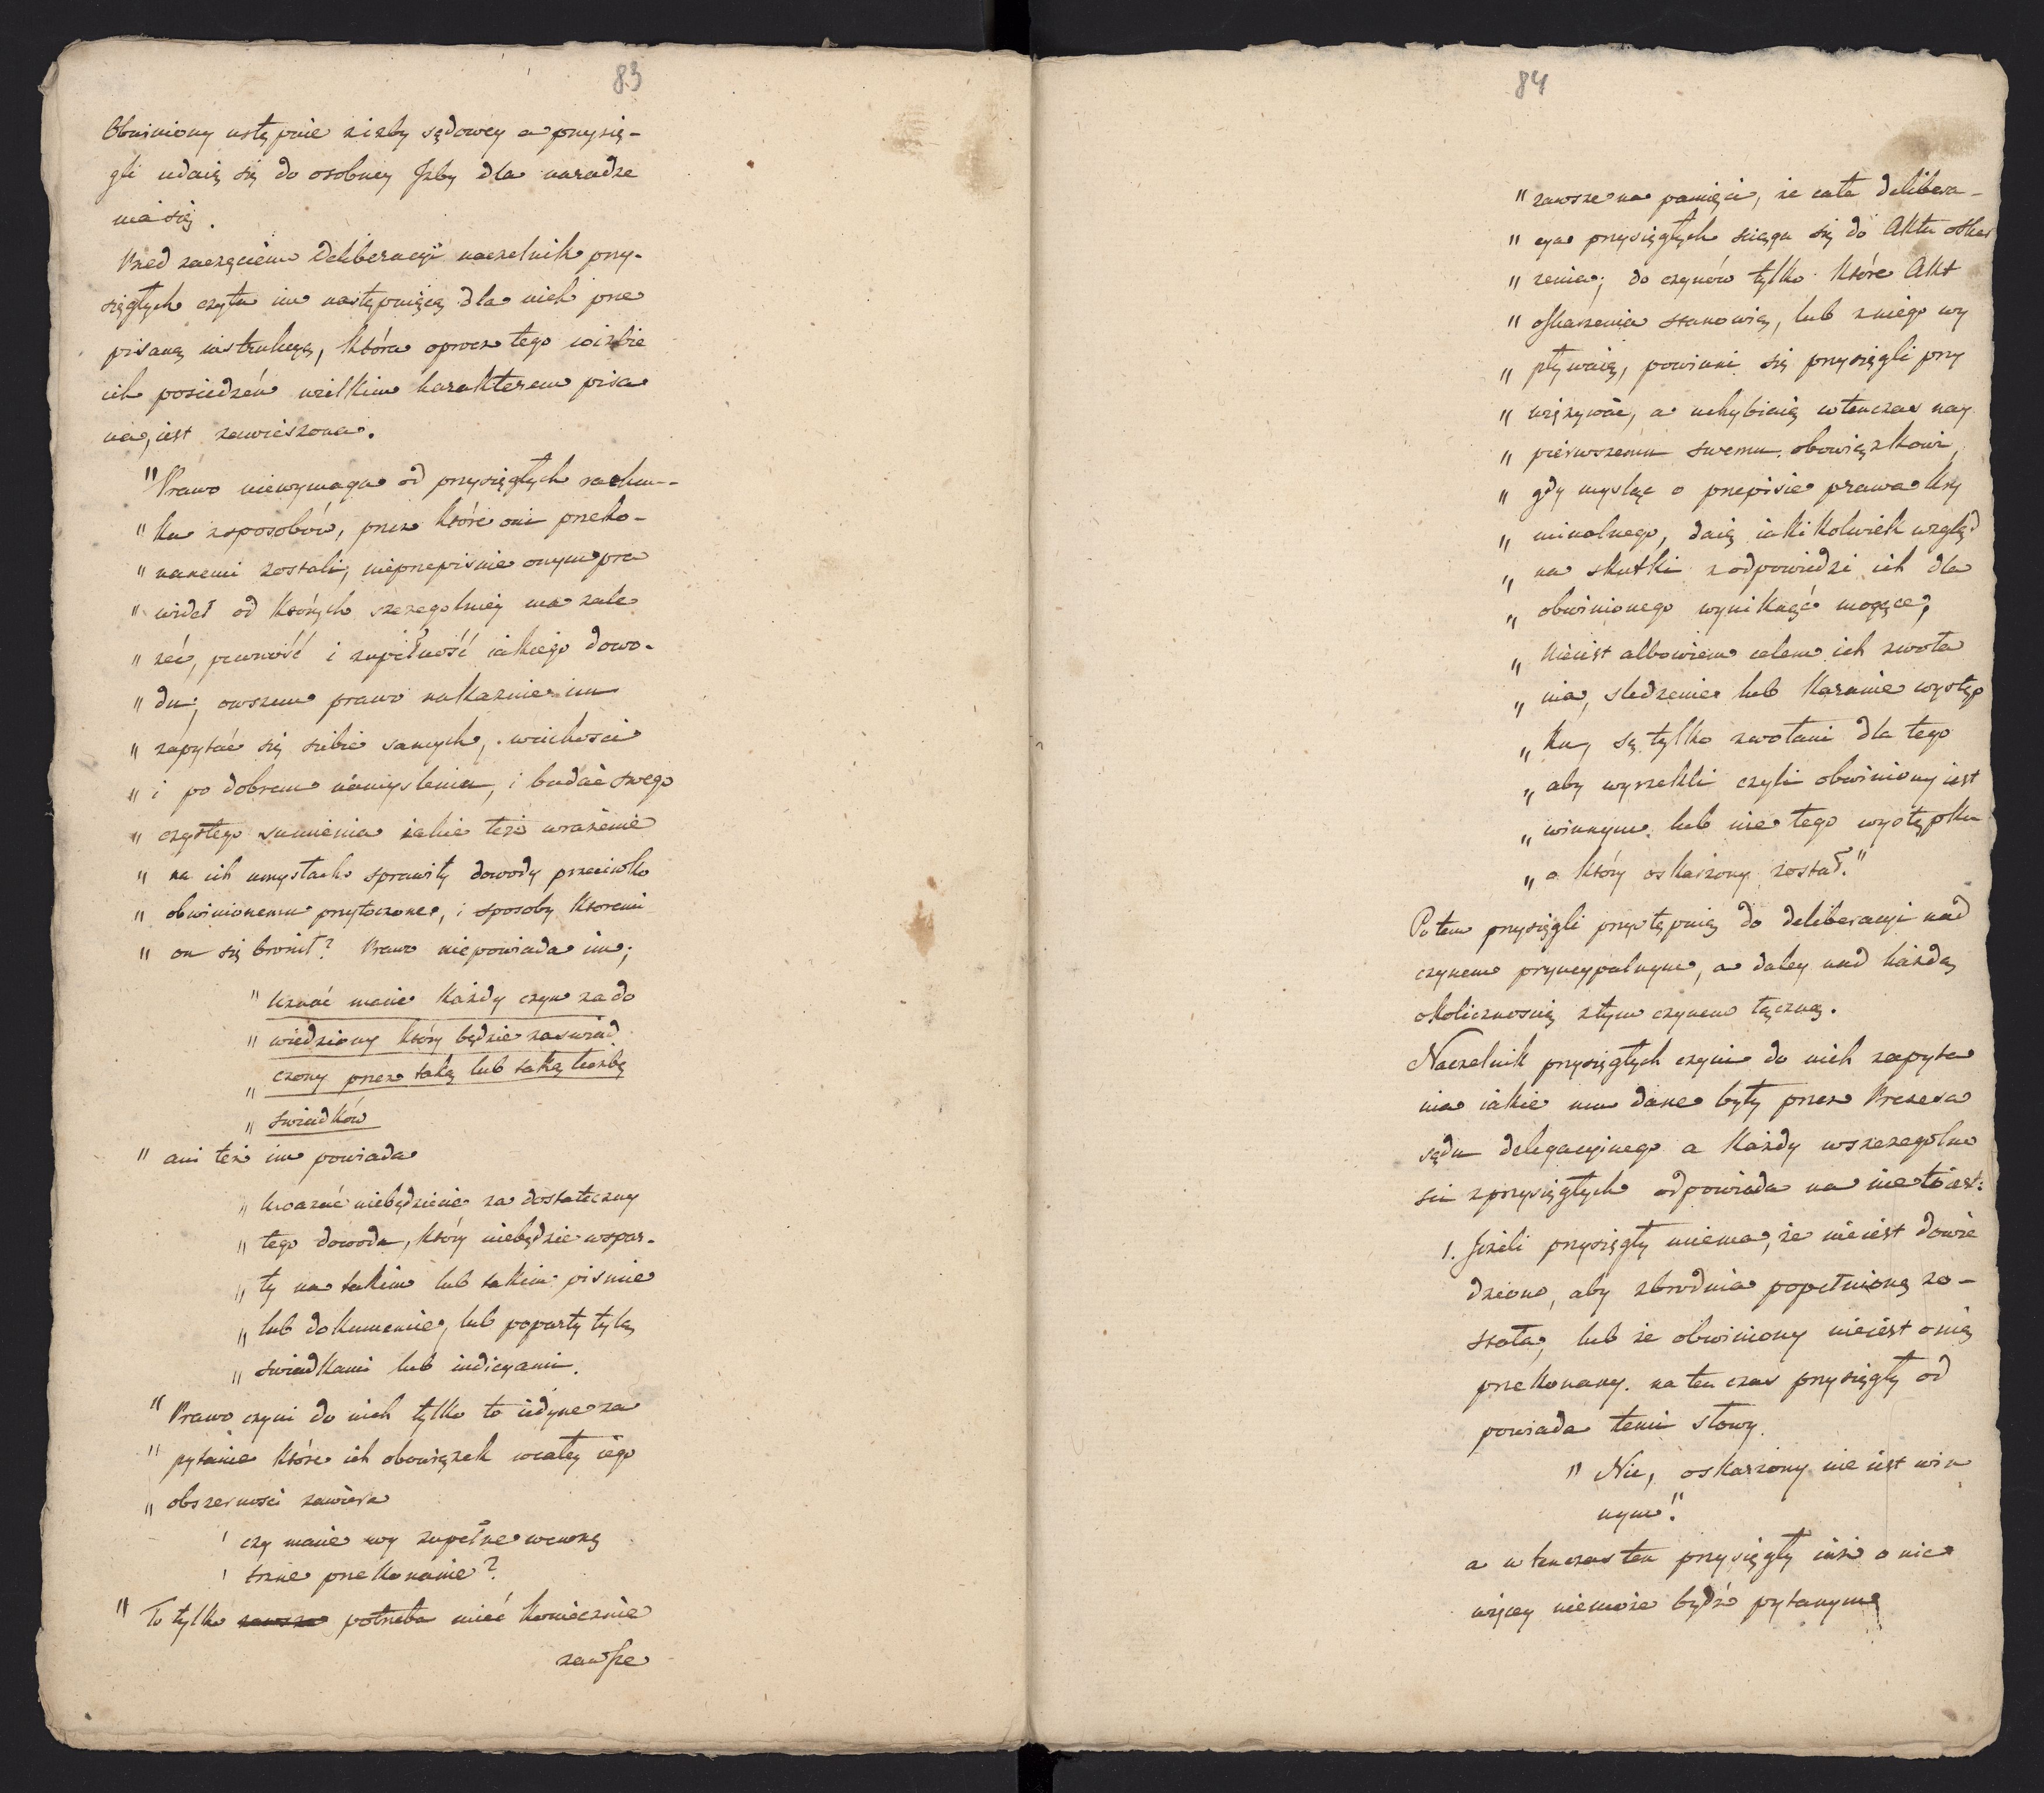 83
Obwiniony ustępuie z izby sądowey a przysię-
gli udaią się do osobney Izby dla naradze
nia się.
Przed zaczęciem Deliberacyi naczelnik przy-
sięgłych czyta im następuiącą dla nich prze
pisaną instrukcyą, która oprocz tego w izbie
ich posiedzeń wielkim karakterem pisa
na, iest zawieszona.
"Prawo niewymaga od przysięgłych rachun-
" ku zsposobów, przez które oni przeko-
" nanemi zostali, nieprzepisuie onym pra
" wideł od których szczegolniey ma zale
" żeć, pewność i zupełność iakiego dowo-
" du; owszem prawo nakazuie im
" zapytać się siebie samych, wcichości
" i po dobrem namysleniu, i badać swego
" czystego sumienia iakie też wrażenie
" na ich umysłach sprawiły dowody przeciwko
" obwinionemu przytoczone, i sposoby ktoremi
" on się bronił? Prawo niepowiada im;
" Uznać macie każdy czyn za do
" wiedziony który będzie zaswiad
" czony przez taką lub taką liczbę
" swiadków
" ani też im powiada
" Uważać niebędziecie za dostateczny
" tego dowodu, który niebędzie wspar-
" ty na takim lub takim pismie
" lub dokumencie, lub poparty tylą
" swiadkami lub indicyami.
" Prawo czyni do nich tylko to iedyne za
" pytanie które ich obowiązek wcałey iego
" obszerności zawiera
' czy macie wy zupełne wewnę
' trzne przekonanie?
" To tylko zawsze potrzeba mieć koniecznie
zawsze
84
" zawsze na pamięci, że cała delibera-
" cya przysięgłych sciąga się do Aktu oskar
" żenia; do czynów tylko które Akt
" oskarzenia stanowią, lub z niego wy
" pływaią, powinni się przysięgli przy
" wiązywać, a uchybiaią wtenczas nay
" pierwszemu swemu obowiązkowi,
" gdy mysląc o przepisie prawa kry
" minalnego, daią iakikolwiek wzgląd
" na skutki z odpowiedzi ich dla
" obwinionego wyniknąć mogące;
" Nieiest albowiem celem ich zwoła
" nia, sledzenie lub karanie występ
" ku, są tylko zwołani dla tego
" aby wyrzekli czyli obwiniony iest
" winnym lub nie tego występku
" o który oskarzony został."
Potem przysięgli przystępuią do deliberacyi nad
czynem pryncypalnym, a daley nad każdą
okolicznoscią z tym czynem łączną.
Naczelnik przysięgłych czyni do nich zapyta
nia iakie mu dane były przez Prezesa
sądu delegacyinego a każdy wszczegolno
sci zprzysięgłych odpowiada na nie to iest:
1. Jeżeli przysięgły mniema, że nieiest dowie
dziono, aby zbrodnia popełnioną zo-
stała, lub że obwiniony nieiest o nią
przekonany. na ten czas przysięgły od
powiada temi słowy.
" Nie, oskarzony nie iest win
nym."
a w tenczas ten przysięgły iuż o nic
więcey niemoże bydź pytanym